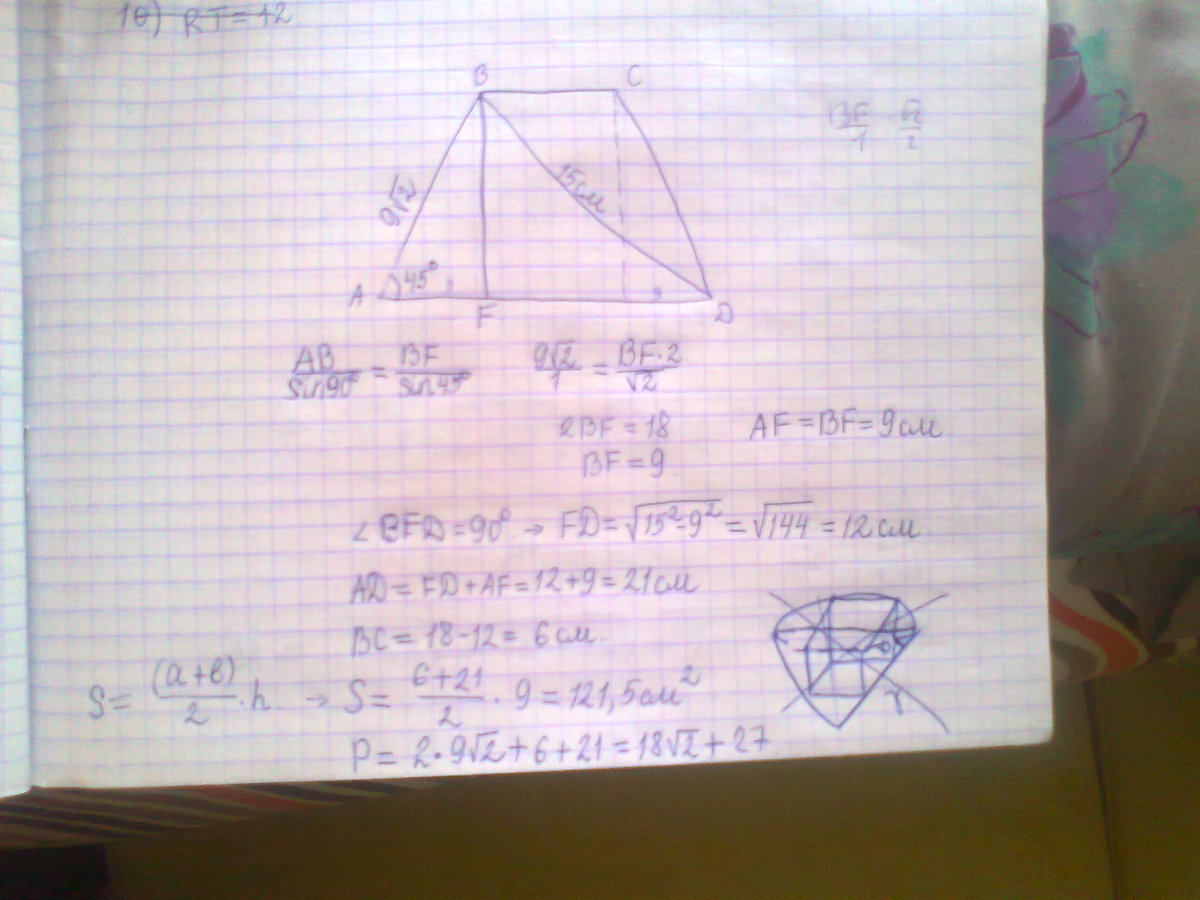 10) RT = 12
B C
BF/1 √2/2
9√2 15см
A 45° F D
AB/sin90° = BF/sin45° 9√2/1 = BF·2/√2
2BF = 18 AF = BF = 9см
BF = 9
∠BFD = 90° → FD = √(15²-9²) = √144 = 12см
AD = FD + AF = 12 + 9 = 21см
BC = 18 - 12 = 6см.
S = (a+b)/2 · h → S = (6+21)/2 · 9 = 121,5см²
P = 2·9√2 + 6 + 21 = 18√2 + 27